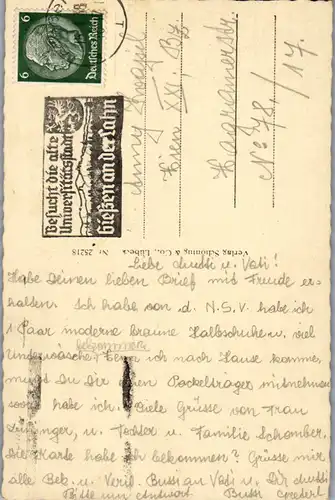 6
Deutsches Reich
6
Besucht die alte
Universitätsstadt
Gießen an der Lahn
Anny
Wien XXI. Bz.
Wagramerstr.
No 78, /17.
Verlag Schöning & Co., Lübeck Nr. 25218
Liebe Mutti u. Vati!
Habe Deinen lieben Brief mit Freude er-
halten. Ich habe von d. N.S.V. habe ich
1 Paar moderne braune Halbschuhe u. viel
Unterwäsche bekommen. Wenn ich nach Hause komme,
musst Du Dir einen Packelträger mitnehmen
habe ich. Viele Grüsse von Frau
u. Tochter u. Familie Schomber.
Die Karte habe ich bekommen? Grüsse mir
alle Bek. u. Verw. Bussi an Vati u. Dir
Bitte um Antwort. Bussi Gretel